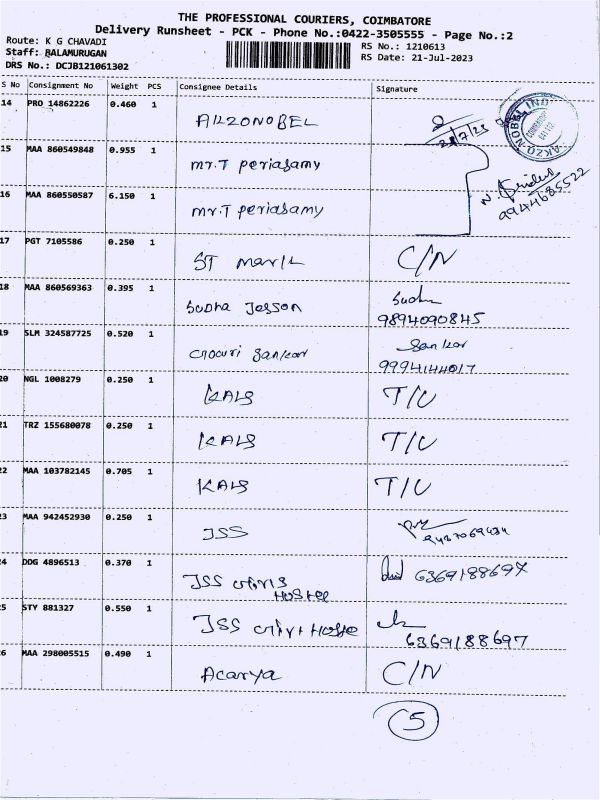 THE PROFESSIONAL COURIERS, COIMBATORE
Delivery Runsheet - PCK - Phone No.:0422-3505555 - Page No.:2
Route: K G CHAVADI
RS No.: 1210613
Staff: BALAMURUGAN
RS Date: 21-Jul-2023
DRS No.: DCJB121061302
S No Consignment No Weight PCS Consignee Details Signature
14 PRO 14862226 0.460 1 AKZONOBEL
15 MAA 860549848 0.955 1 mr.T Periasamy
16 MAA 860550587 6.150 1 mr.T Periasamy 9944685522
17 PGT 7105586 0.250 1 ST mark C/N
18 MAA 860569363 0.395 1 Sudha Jesson Sudha
9894090845
19 SLM 324587725 0.520 1 Gowri Sankar Sankar
9994144017
20 NGL 1008279 0.250 1 KALS T/U
21 TRZ 155680078 0.250 1 KALS T/U
22 MAA 103782145 0.705 1 KALS T/U
23 MAA 942452930 0.250 1 JSS
24 DDG 4896513 0.370 1 JSS Girls 6369188697
Hostel
25 STY 881327 0.550 1 JSS Girl Hostel
6369188697
26 MAA 298005515 0.490 1 Acarya C/N
5